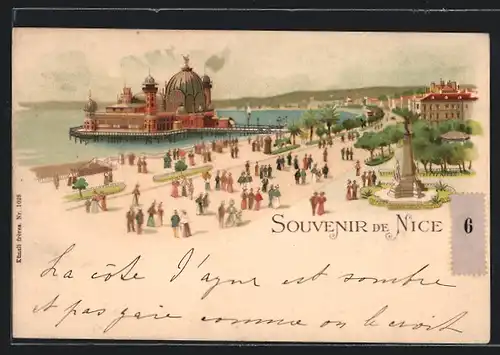 SOUVENIR DE NICE
6
Künzli frères, Nr. 1026
La côte d'azur est sombre
et pas gaie comme on le croit